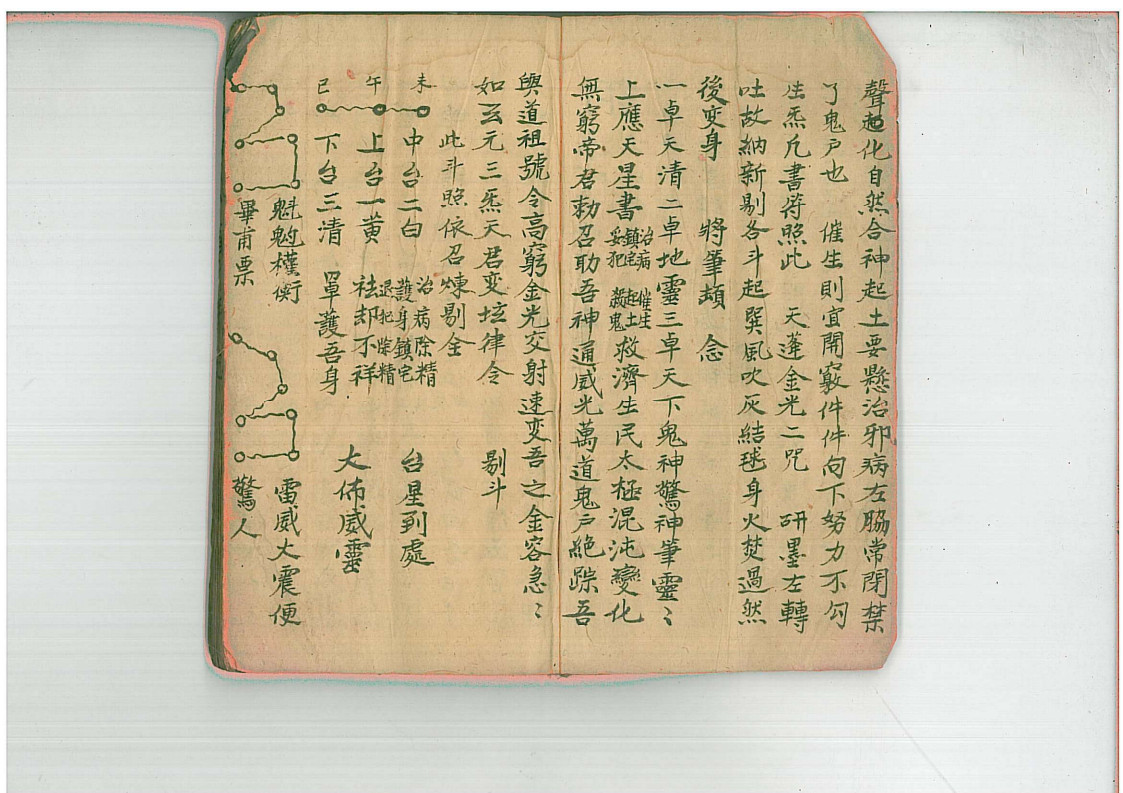 聲起化自然合神起土要懸治邪病左脇常閉禁
了鬼戸也 催生則宜開竅件件向下努力不勾
生炁凢書符照此 天蓬金光二咒 研墨左轉
吐故納新剔各斗起巽風吹灰結毬身火焚過然
後变身 將筆頓 念
一卓天清二卓地靈三卓天下鬼神驚神筆靈〻
上應天星書治病鎮宅妥犯催生起土殺鬼救濟生民太極混沌變化
無窮帝君勅召助吾神通威光萬道鬼戸絶踪吾
與道祖號令高窮金光交射速变吾之金容急〻
如玄元三炁天君变垓律令 剔斗
此斗照依召煉剔全
未 中台二白 治病除精護身鎮宅退犯除精 台星到處
午 上台一黄 祛却不祥 大佈威靈
巳 下台三清 罩護吾身
魁𩲃權衡 雷威大震便
畢甫票 驚人